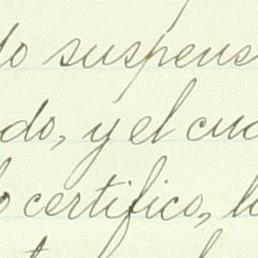 do suspens
do, y el cua
o certifico, l